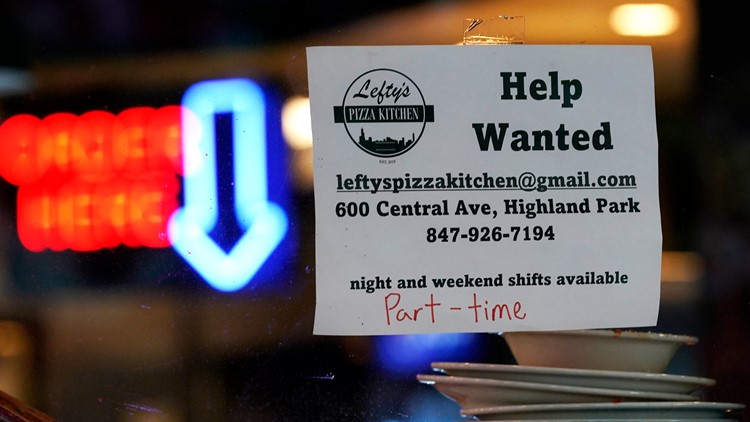 Lefty's
PIZZA KITCHEN
Help
Wanted
leftyspizzakitchen@gmail.com
600 Central Ave, Highland Park
847-926-7194
night and weekend shifts available
Part-time